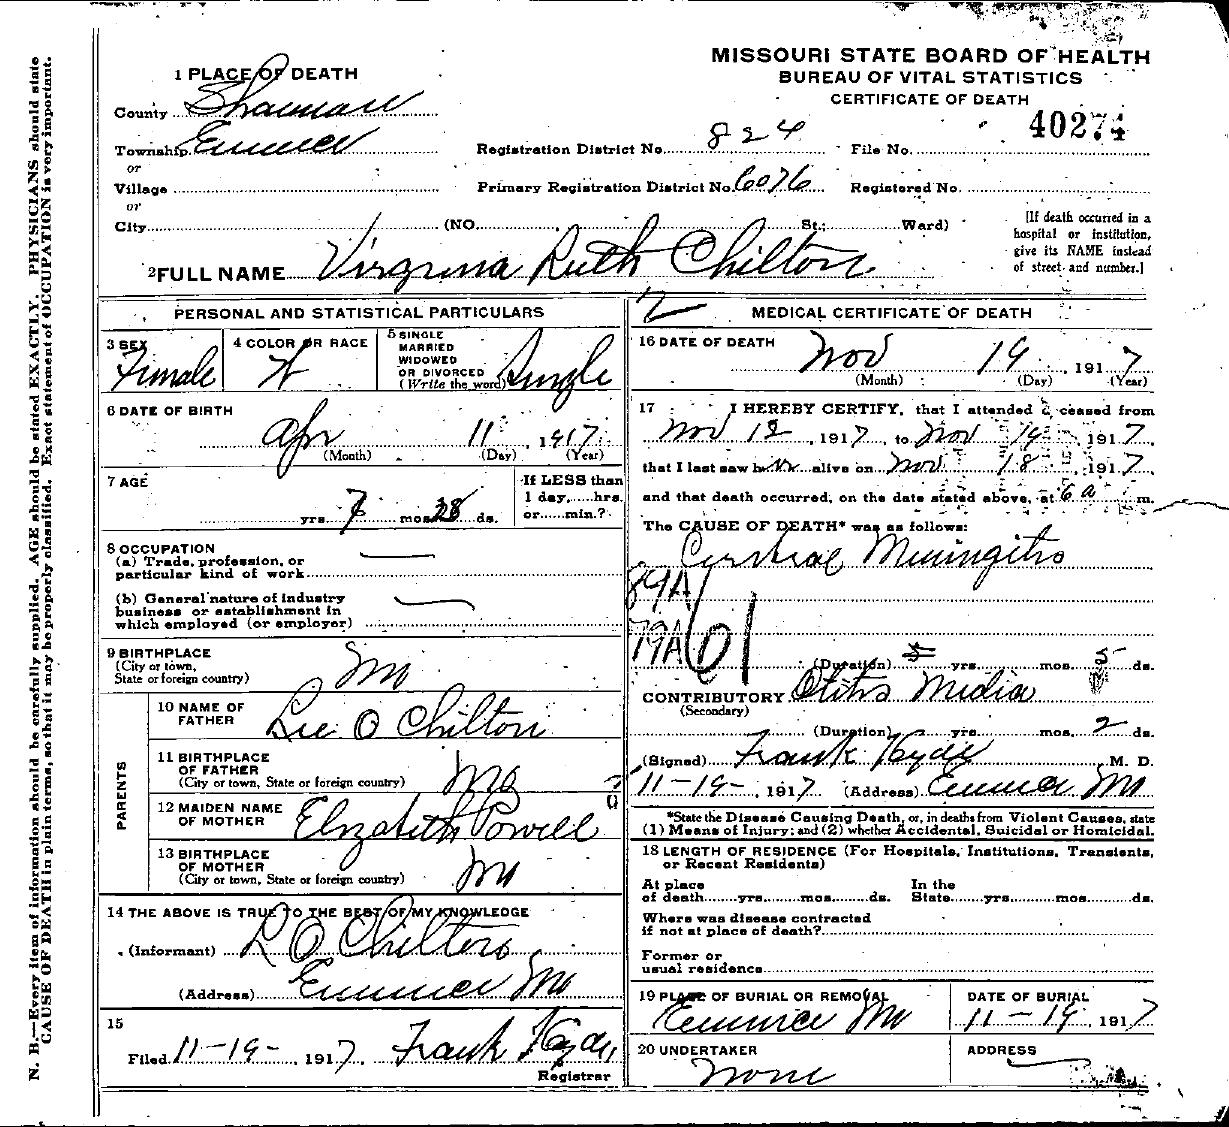 MISSOURI STATE BOARD OF HEALTH
BUREAU OF VITAL STATISTICS
CERTIFICATE OF DEATH
40274
1 PLACE OF DEATH
County Shannon
Township
or
Village
or
City (NO. St.; Ward)
Registration District No. 824 File No.
Primary Registration District No. 6076 Registered No.
[If death occurred in a
hospital or institution,
give its NAME instead
of street and number.]
2 FULL NAME Virginia Ruth Chilton
PERSONAL AND STATISTICAL PARTICULARS
3 SEX
Female
4 COLOR OR RACE
W
5 SINGLE
MARRIED
WIDOWED
OR DIVORCED
(Write the word)
Single
6 DATE OF BIRTH
Apr 11, 1917
(Month) (Day) (Year)
7 AGE
yrs. 7 mos. 28 ds.
If LESS than
1 day, hrs.
or min.?
8 OCCUPATION
(a) Trade, profession, or
particular kind of work
(b) General nature of industry
business or establishment in
which employed (or employer)
9 BIRTHPLACE
(City or town,
State or foreign country)
Mo
PARENTS
10 NAME OF
FATHER
Lee O Chilton
11 BIRTHPLACE
OF FATHER
(City or town, State or foreign country)
Mo
12 MAIDEN NAME
OF MOTHER
Elizabeth Powell
13 BIRTHPLACE
OF MOTHER
(City or town, State or foreign country)
Mo
14 THE ABOVE IS TRUE TO THE BEST OF MY KNOWLEDGE
(Informant) L O Chilton
(Address) Mo
15
Filed 11-19-, 1917. Frank Hyde,
Registrar
2
MEDICAL CERTIFICATE OF DEATH
16 DATE OF DEATH
Nov 19, 1917
(Month) (Day) (Year)
17 I HEREBY CERTIFY, that I attended deceased from
Nov 12, 1917, to Nov 19, 1917.
that I last saw her alive on Nov 18, 1917,
and that death occurred, on the date stated above, at 6 a m.
The CAUSE OF DEATH* was as follows:
Cerebral Meningitis
79A
79A
61
(Duration) yrs. mos. 5 ds.
CONTRIBUTORY Otitis Media
(Secondary)
(Duration) yrs. mos. 2 ds.
(Signed) Frank Hyde M. D.
11-19-, 1917 (Address) Mo
*State the Disease Causing Death, or, in deaths from Violent Causes, state
(1) Means of Injury; and (2) whether Accidental, Suicidal or Homicidal.
18 LENGTH OF RESIDENCE (For Hospitals, Institutions, Transients,
or Recent Residents)
At place
of death yrs. mos. ds.
In the
State yrs. mos. ds.
Where was disease contracted
if not at place of death?
Former or
usual residence
19 PLACE OF BURIAL OR REMOVAL
Mo
DATE OF BURIAL
11-19, 1917
20 UNDERTAKER
None
ADDRESS
N. B.—Every item of information should be carefully supplied. AGE should be stated EXACTLY. PHYSICIANS should state
CAUSE OF DEATH in plain terms, so that it may be properly classified. Exact statement of OCCUPATION is very important.